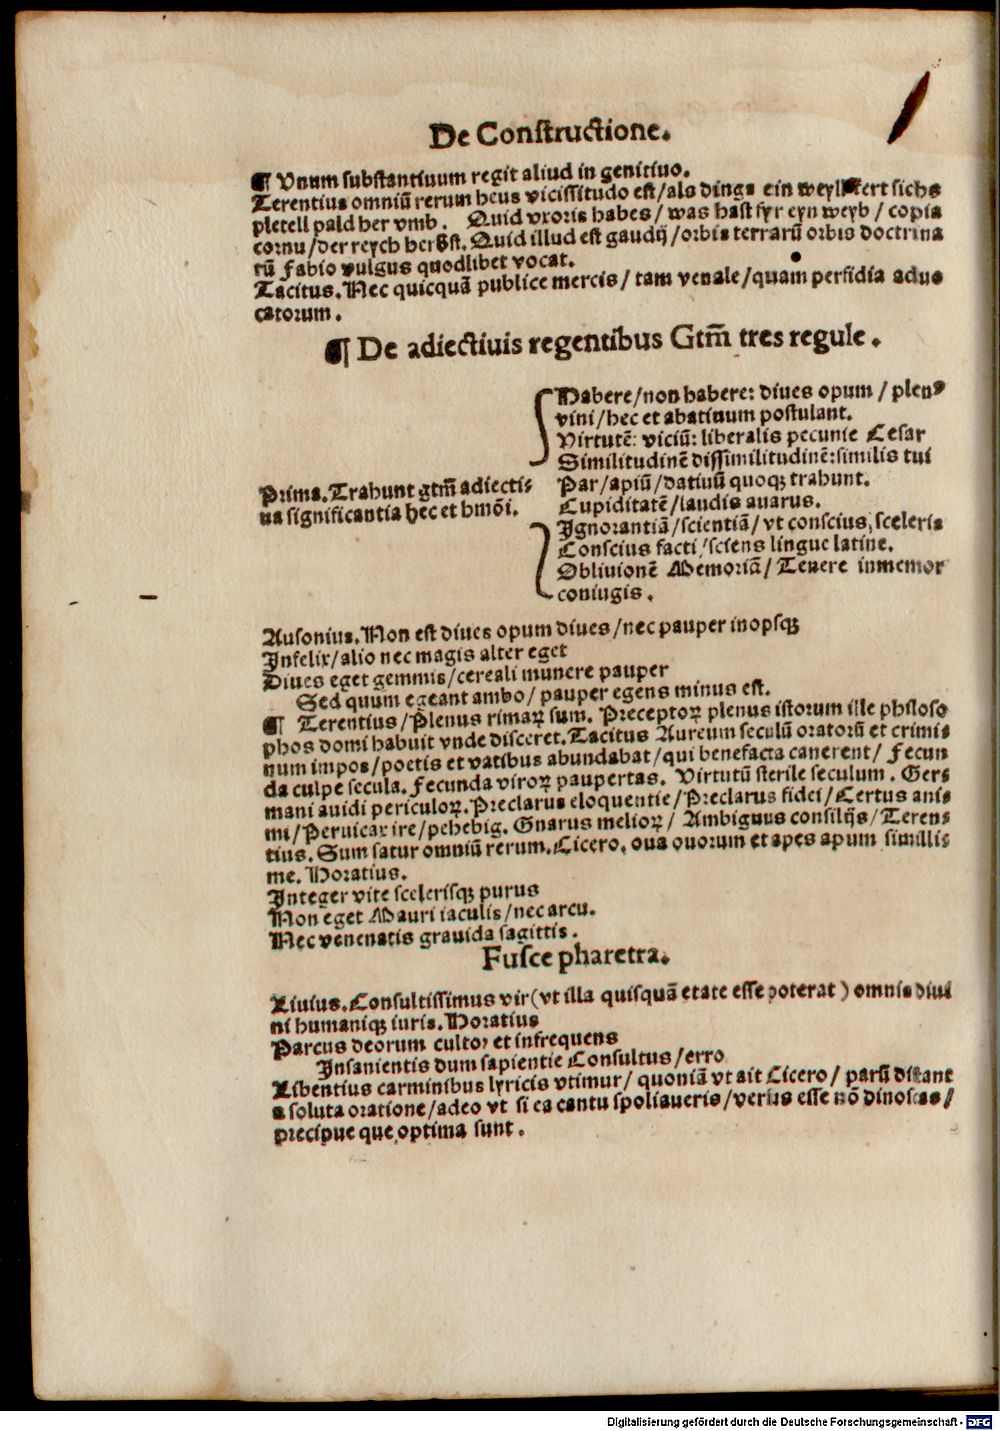 De Constructione.
¶ Vnum substantiuum regit aliud in genitiuo.
Terentius omniū rerum heus vicissitudo est/als dings ein kert sichs
pletell pald her vmb. Quid vxoris habes/was hast fyr eyn weyb/copia
cornu/der reych herbst. Quid illud est gaudij/orbis terrarū orbis doctrina
rū Fabio vulgus quodlibet vocat.
Tacitus. Nec quicquā publice mercis/tam venale/quam perfidia aduo
catorum.
¶ De adiectiuis regentibus Gtm̄ tres regule.
Habere/non habere: diues opum/plenꝰ
vini/hec et abatiuum postulant.
Virtutē: viciū: liberalis pecunie Cesar
Similitudinē dissimilitudinē:similis tui
Prima. Trahunt gtm̄ adiecti-
ua significantia hec et hmōi.
Par/apiū/datiuū quoqꝫ trahunt.
Cupiditatē/laudis auarus.
Ignorantiā/scientiā/vt conscius, sceleris
Conscius facti/sciens lingue latine.
Obliuionē Memoriā/Teuere inmemor
coniugis.
Ausonius. Non est diues opum diues/nec pauper inopsqꝫ
Infelix/alio nec magis alter eget
Diues eget gemmis/cereali munere pauper
Sed quum egeant ambo/pauper egens minus est.
¶ Terentius/Plenus rimaꝝ sum. Preceptoꝝ plenus istorum ille philoso
phos domi habuit vnde disceret. Tacitus Aureum seculū oratorū et crimi-
num impos/poetis et vatibus abundabat/qui benefacta canerent/Fecun
da culpe secula. Fecunda viroꝝ paupertas. Virtutū sterile seculum. Ger-
mani auidi periculoꝝ. Preclarus eloquentie/Preclarus fidei/Certus ani-
mi/Peruicax ire/pehebig. Gnarus melioꝝ/Ambiguus consilijs/Teren-
tius. Sum satur omniū rerum. Cicero. oua ouorum et apes apum simillis
me. Horatius.
Integer vite scelerisqꝫ purus
Non eget Mauri iaculis/nec arcu.
Nec venenatis grauida sagittis.
Fusce pharetra.
Liuius. Consultissimus vir (vt illa quisquā etate esse poterat) omnis diui
ni humaniqꝫ iuris. Horatius
Parcus deorum cultor et infrequens
Insanientis dum sapientie Consultus/erro
Libentius carminibus lyricis vtimur/quoniā vt ait Cicero/parū distant
a soluta oratione/adeo vt si ea cantu spoliaueris/versus esse nō dinoscas/
precipue que optima sunt.
Digitalisierung gefördert durch die Deutsche Forschungsgemeinschaft - DFG